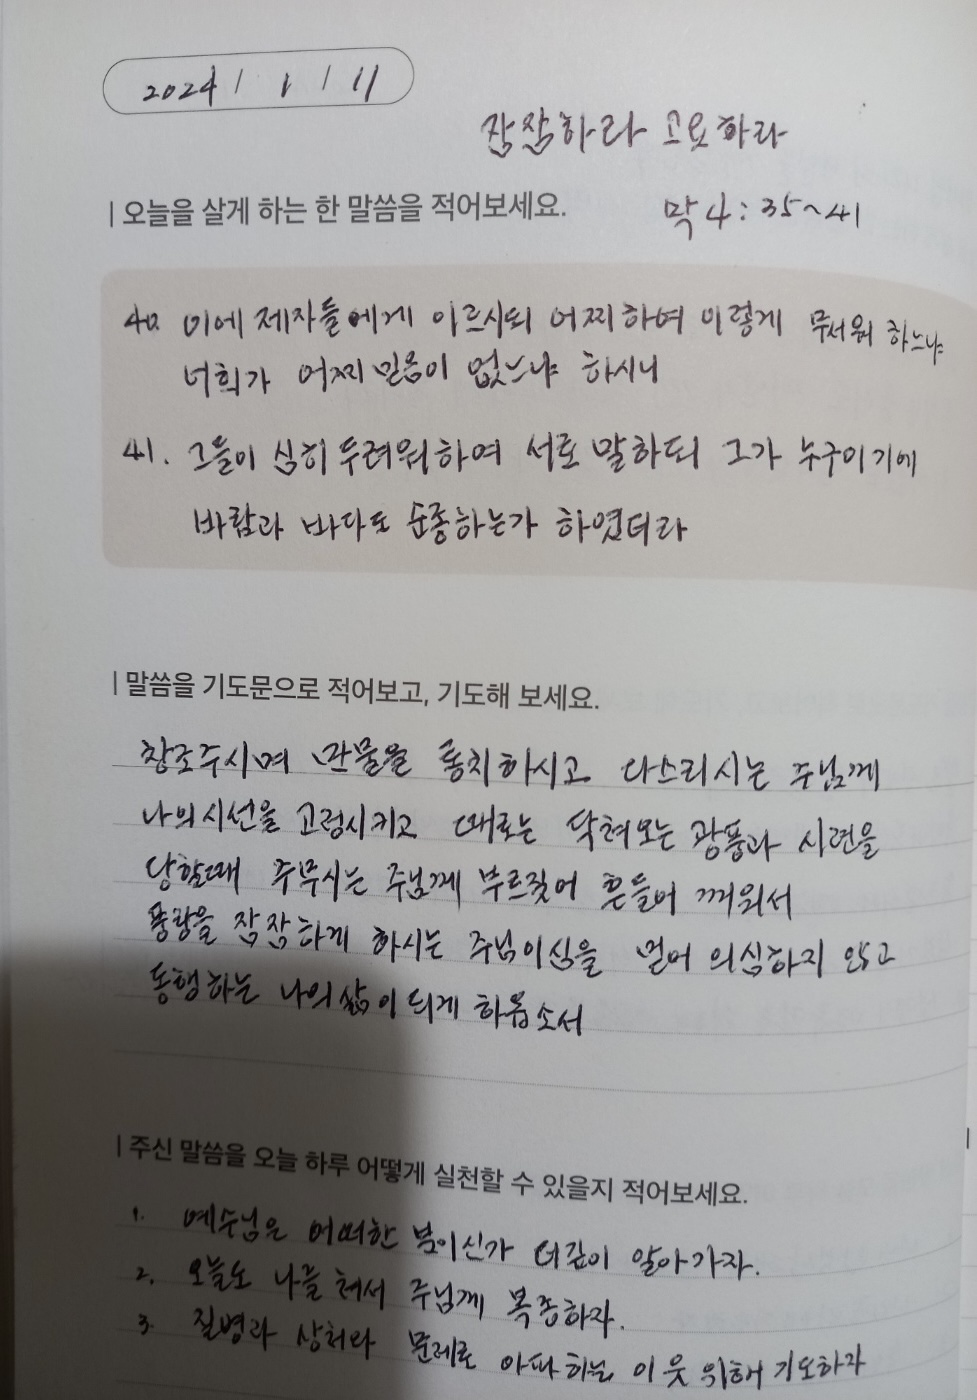 2024 / 1 / 11
잠잠하라 고요하라
오늘을 살게 하는 한 말씀을 적어보세요.
막 4 : 35~41
40. 이에 제자들에게 이르시되 어찌하여 이렇게 무서워 하느냐
너희가 어찌 믿음이 없느냐 하시니
41. 그들이 심히 두려워하여 서로 말하되 그가 누구이기에
바람과 바다도 순종하는가 하였더라
말씀을 기도문으로 적어보고, 기도해 보세요.
창조주시며 만물을 통치하시고 다스리시는 주님께
나의 시선을 고정시키고 때로는 닥쳐오는 광풍과 시련을
당할때 주무시는 주님께 부르짖어 흔들어 깨워서
풍랑을 잠잠하게 하시는 주님이심을 믿어 의심하지 않고
동행하는 나의 삶이 되게 하옵소서
주신 말씀을 오늘 하루 어떻게 실천할 수 있을지 적어보세요.
1. 예수님은 어떠한 분이신가 더 깊이 알아가자.
2. 오늘도 나를 쳐서 주님께 복종하자.
3. 질병과 상처와 문제로 아파하는 이웃 위해 기도하자